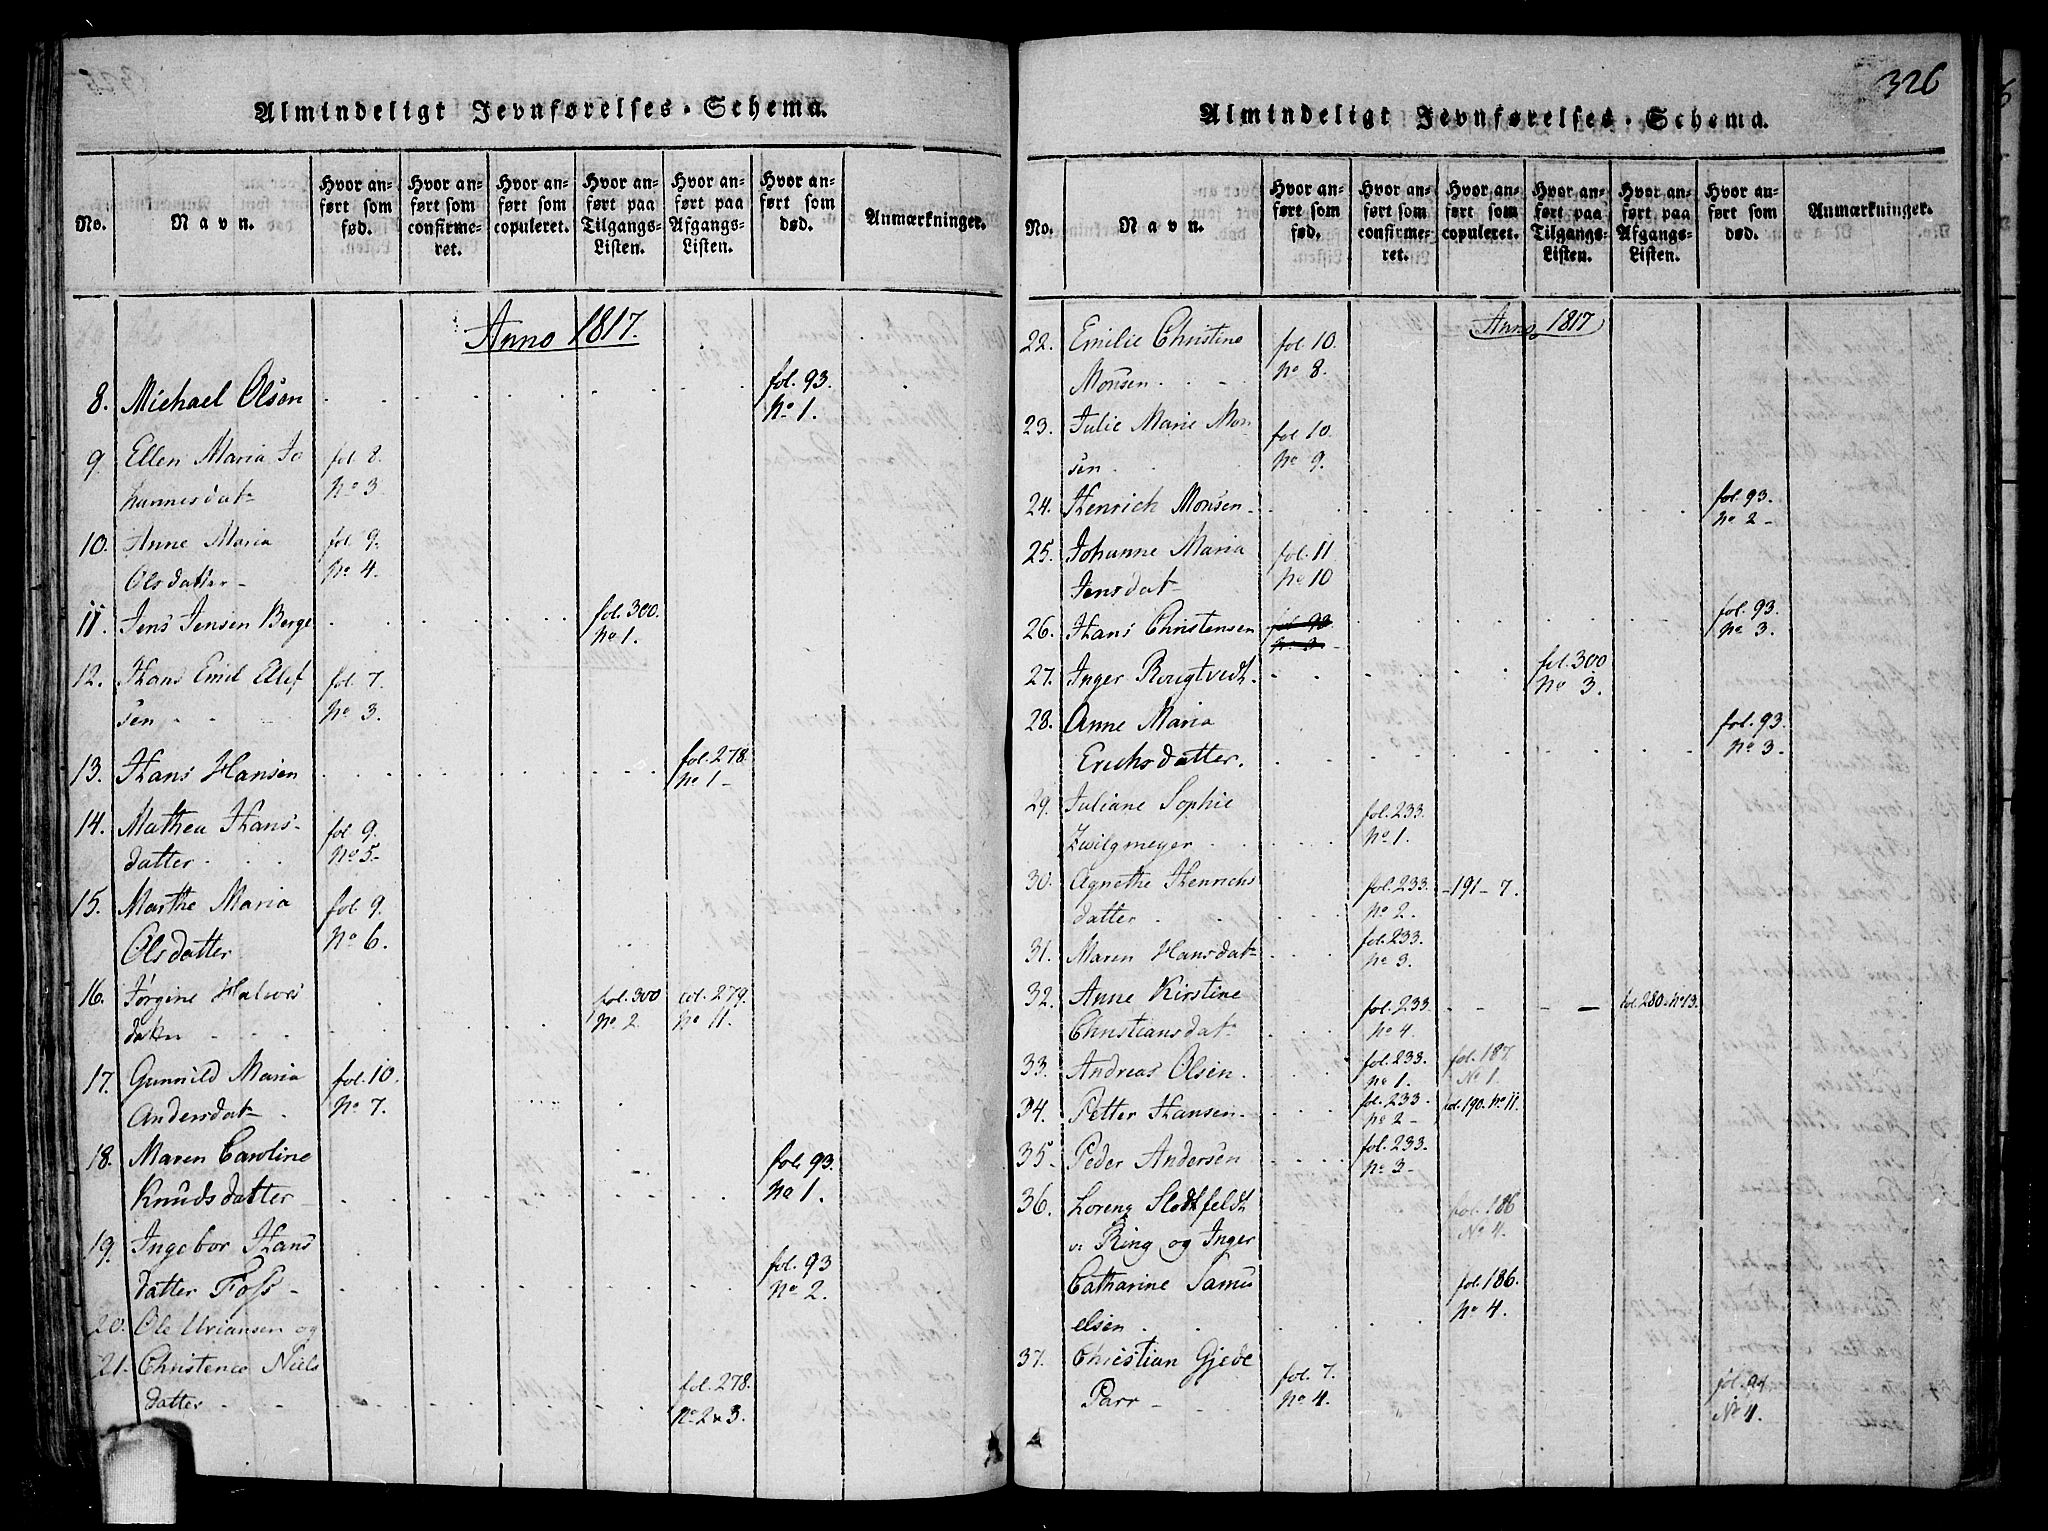 Almindeligt Jevnførelses-Schema.
No.
Navn.
Hvor an-
ført som
fød.
Hvor an-
ført som
confirme-
ret.
Hvor an-
ført som
copuleret.
Hvor an-
ført paa
Tilgangs-
Listen.
Hvor an-
ført paa
Afgangs-
Listen.
Hvor an-
ført som
død.
Anmærkninger.
Anno 1817.
8. Michael Olsen fol. 93.
No 1.
9. Ellen Maria Jo fol. 8.
hannesdat No 3
10. Anne Maria fol. 9.
Olsdatter No 4.
11. Jens Jensen Berge fol. 300.
No 1.
12. Hans Emil Elef fol. 7.
sen No 3.
13. Hans Hansen fol. 278.
No 1
14. Mathea Hans- fol. 9.
datter No 5
15. Marthe Maria fol. 9.
Olsdatter No 6.
16. Jørgine Halvors fol. 300 fol. 279.
datter No 2 No 11.
17. Gunnild Maria fol. 10.
Andersdat No 7.
18. Maren Caroline fol. 93.
Knudsdatter No 1.
19. Ingebor Hans fol. 93
datter Foss No 2.
20. Ole Uriansen og
21. Christence Niels fol. 278.
datter No 2 & 3.
326
Almindeligt Jevnførelses-Schema.
No.
Navn.
Hvor an-
ført som
fød.
Hvor an-
ført som
confirme-
ret.
Hvor an-
ført som
copuleret.
Hvor an-
ført paa
Tilgangs-
Listen.
Hvor an-
ført paa
Afgangs-
Listen.
Hvor an-
ført som
død.
Anmærkninger.
Anno 1817
22. Emilie Christine fol. 10.
Monsen No 8.
23. Julie Marie Mon fol. 10.
sen No 9.
24. Henrich Monsen fol. 93.
No 2
25. Johanne Maria fol. 11
Jensdat No 10
26. Hans Christensen fol. 93 fol. 93.
No 3 No 3.
27. Inger Rougtvedt fol. 300
No 3.
28. Anne Maria fol. 93.
Erichsdatter. No 3.
29. Juliane Sophie fol. 233.
Zwilgmeyer No 1.
30. Agnethe Henrichs fol. 233. 191 - 7.
datter No 2.
31. Maren Hansdat fol. 233.
No 3.
32. Anne Kirstine fol. 233. fol. 280. No 13.
Christiansdat No 4
33. Andreas Olsen fol. 233. fol. 187.
No 1. No 1.
34. Petter Hansen fol. 233 fol. 190. No 11.
No 2
35. Peder Andersen fol. 233.
No 3
36. Lorenz Slodtfeldt fol. 186
Ring og Inger No 4.
Catharine Samu fol. 186.
elsen No 4.
37. Christian Gjede fol. 7. fol. 94
Parr No 4. No 4.